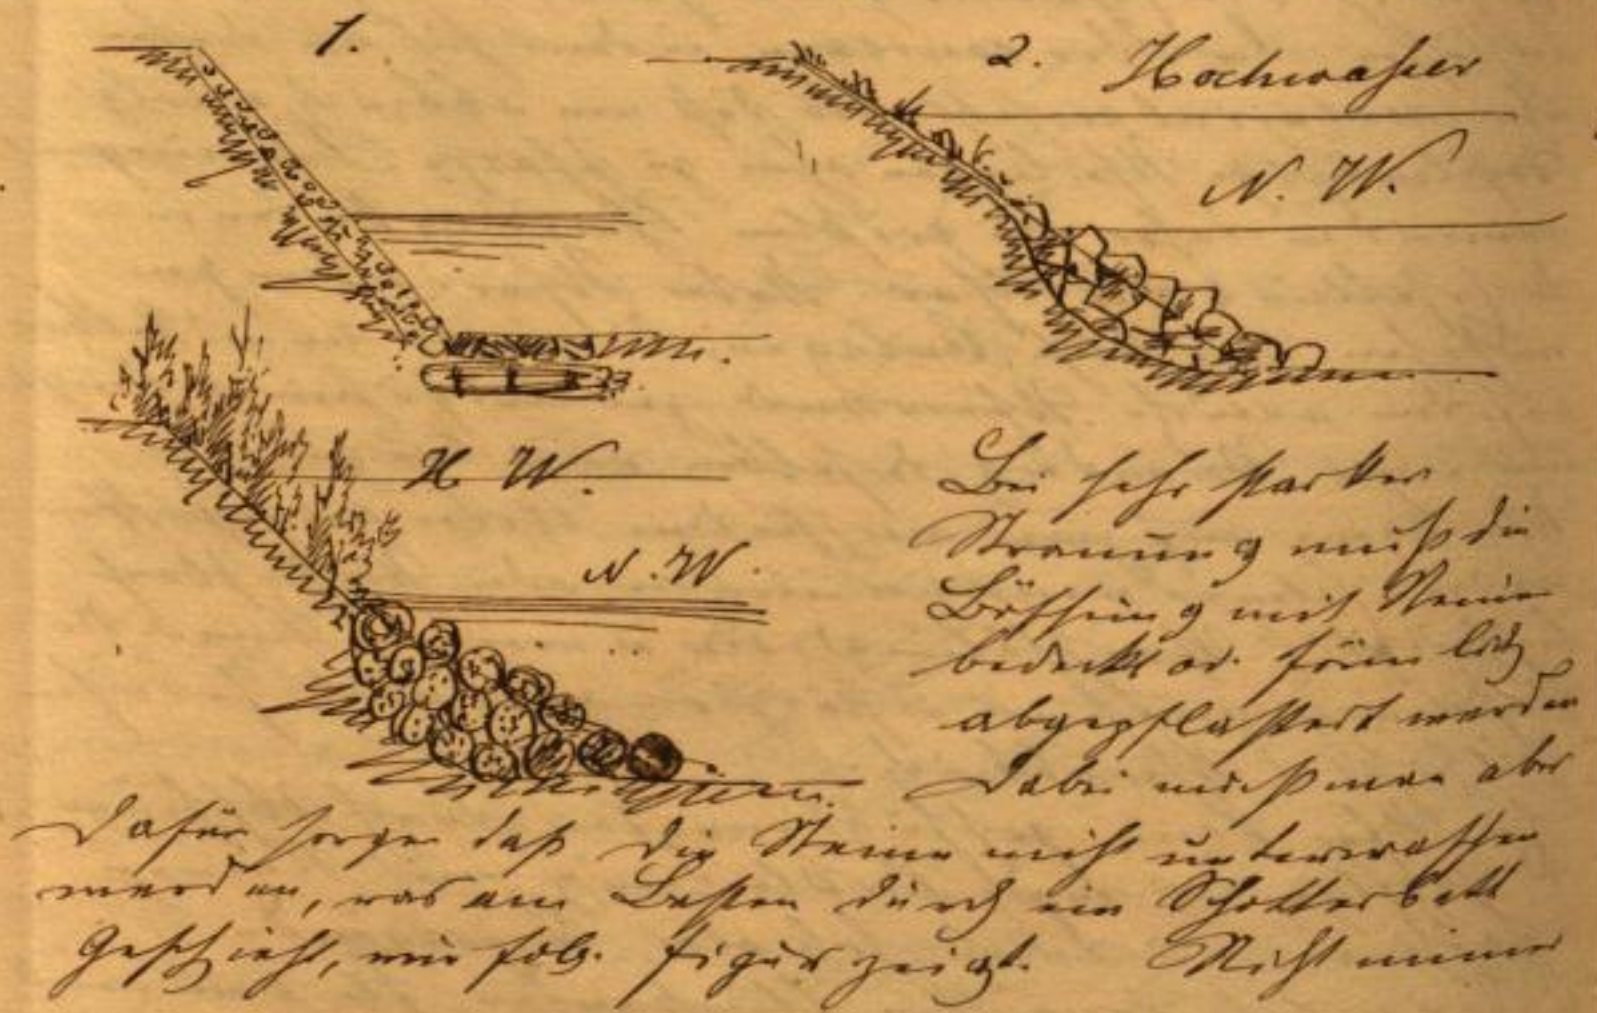 1.
2. Hochwasser
N. W.
H W.
N. W.
Bei sehr starker
Stromung muß die
Böschung mit Steine
bedeckt od. förmlich
abgepflastert werden
Dabei muß man aber
dafür sorge daß die Steine nicht unterwaschen
werden, was am Besten durch ein Schotterbett
geschieht, wie folg. Figur zeigt. Nicht immer